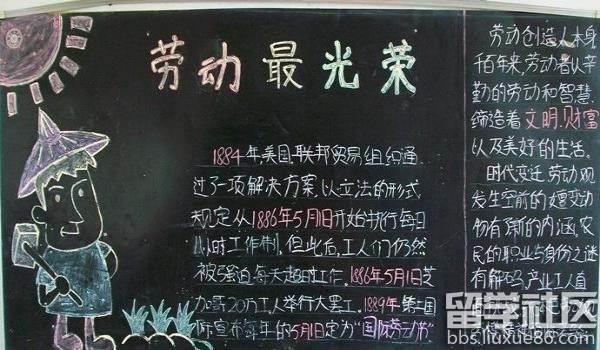 劳动最光荣
1884年美国联邦贸易组织通
过了一项解决方案以立法的形式
规定从1886年5月1日开始执行每日
八小时工作制,但此后,工人们仍然
被强迫每天超时工作.1886年5月1日芝
加哥20万工人举行大罢工.1889年第二国
际宣布每年的5月1日定为"国际劳动节"
劳动创造人本身
千百年来,劳动者以辛
勤的劳动和智慧
缔造着文明.财富
以及美好的生活。
时代变迁劳动观
发生空前的嬗变劳动
有新的内涵,农
民的职业与身份之谜
有解码,产业工人直
留学社区
bbs.liuxue86.com